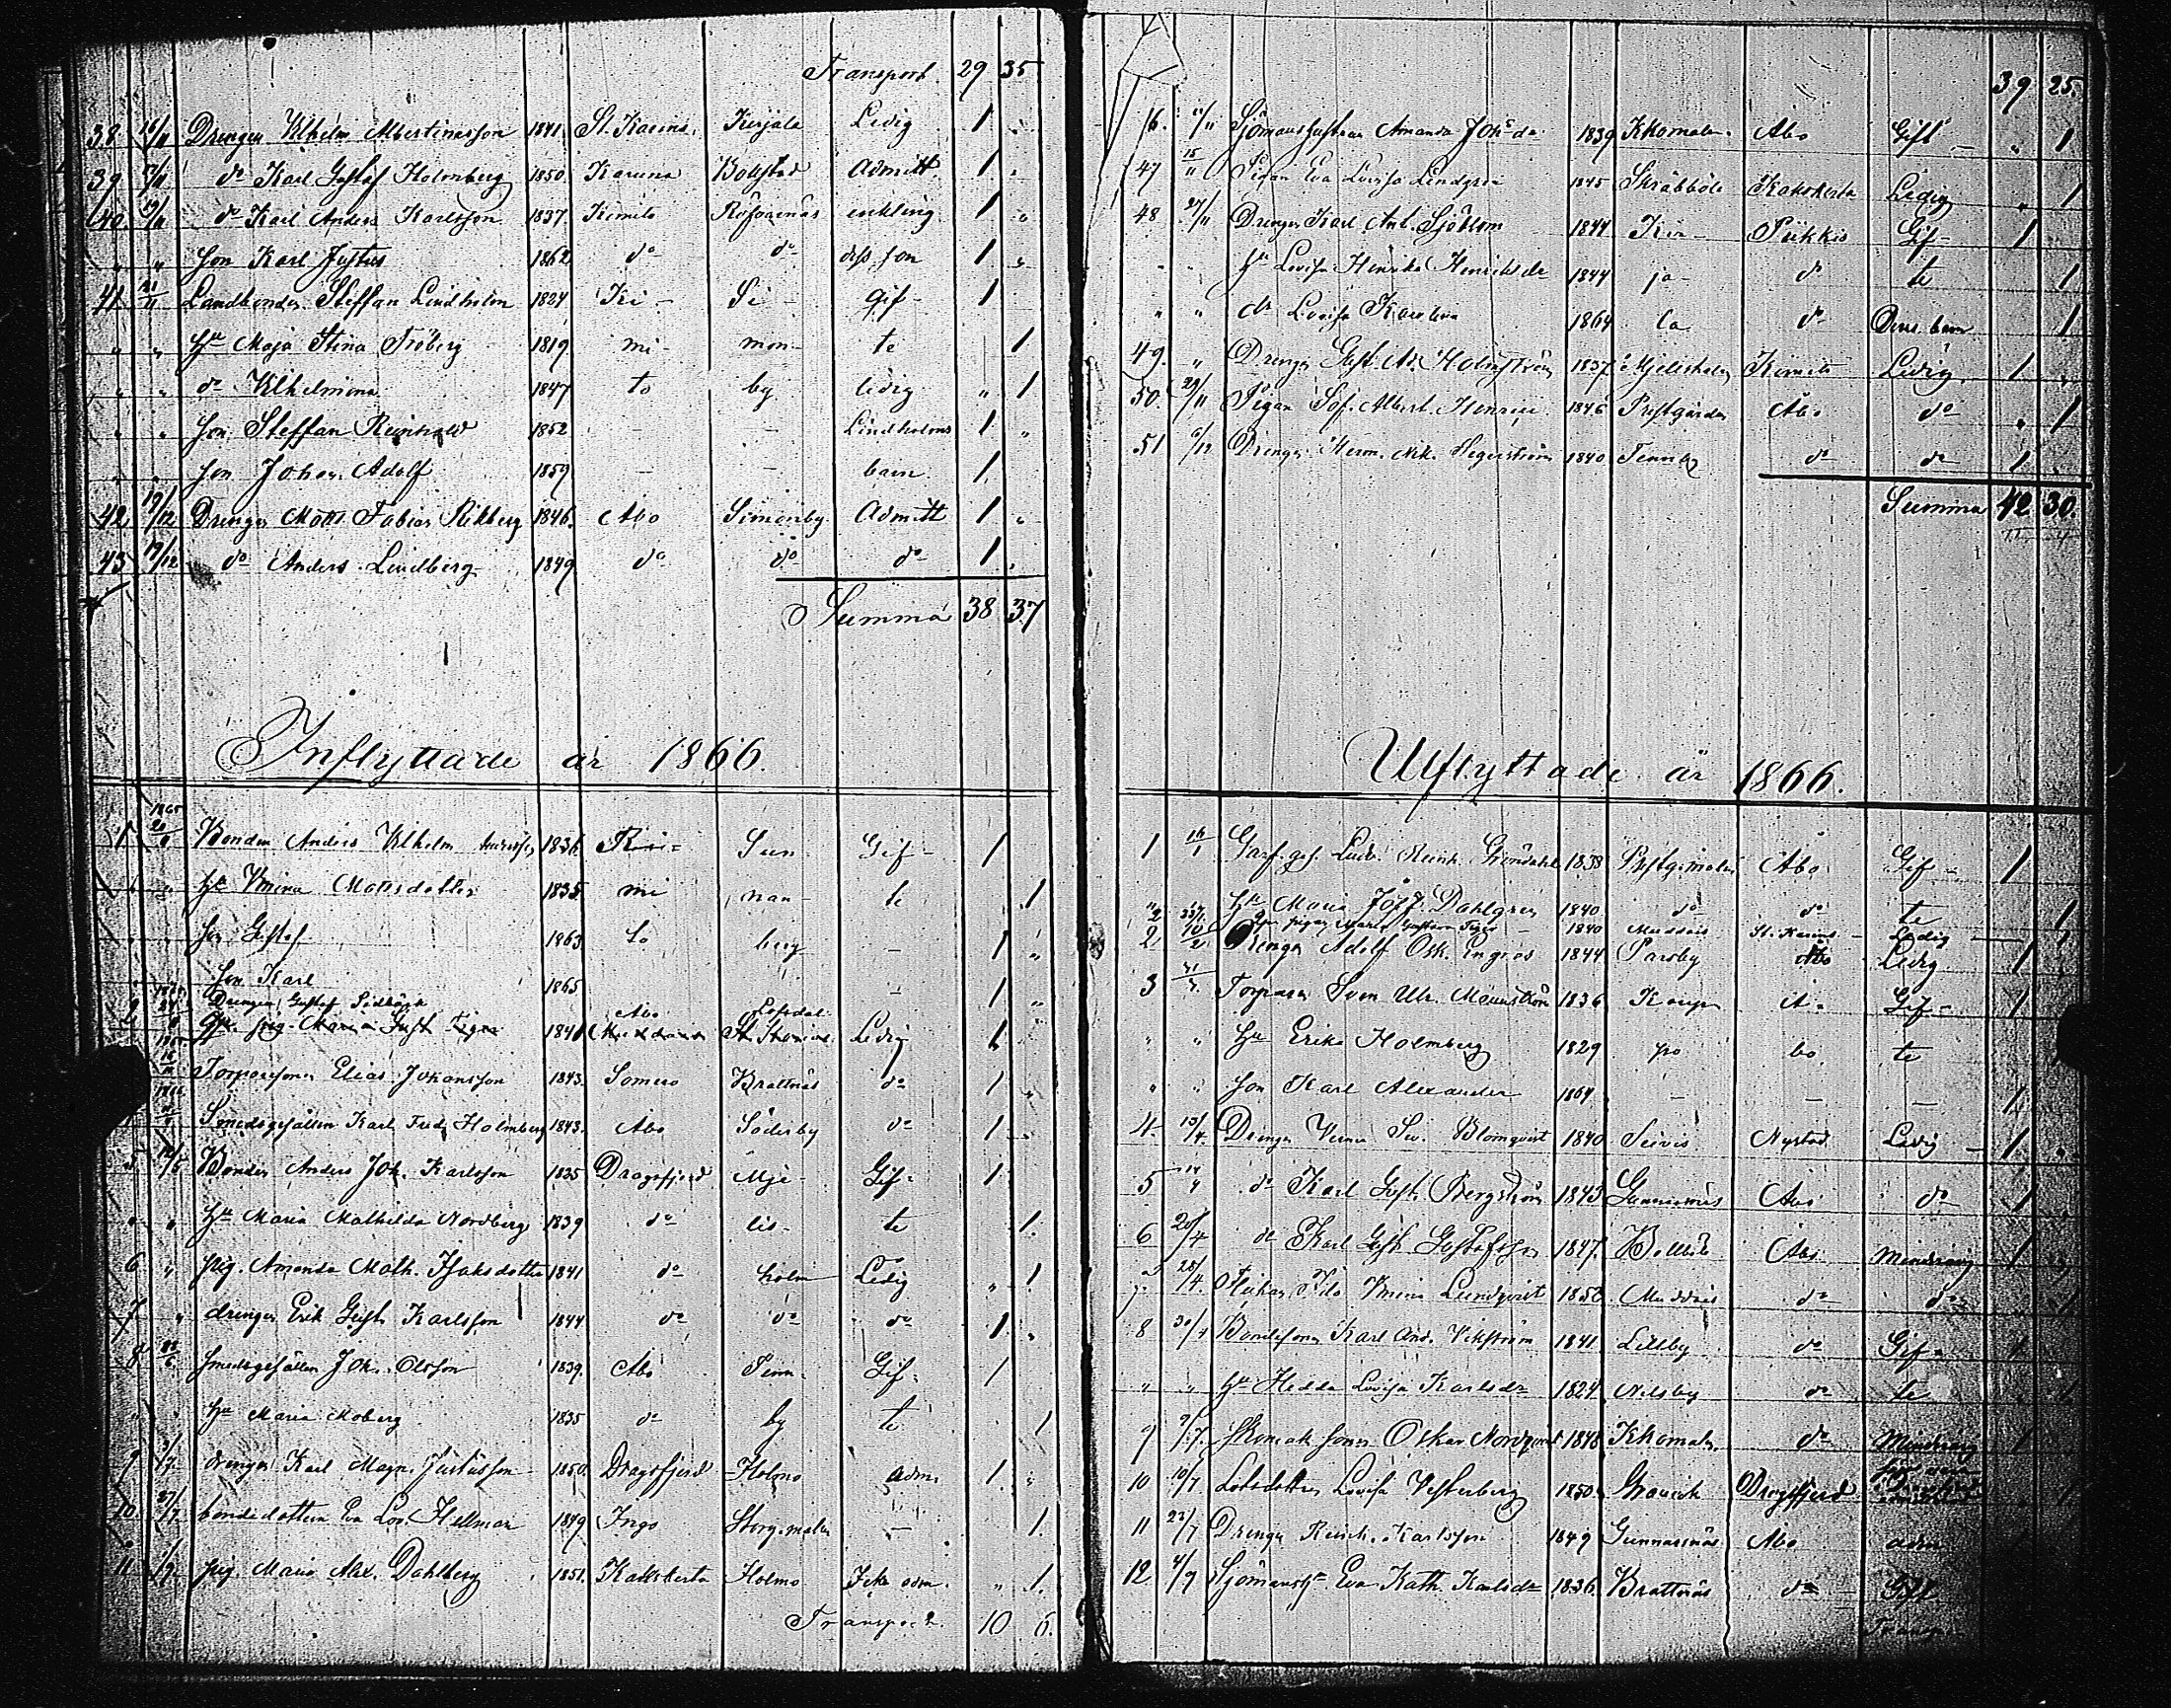 Transport. 29 35
38 16/11 Drengen Vilhelm Albertinasson 1841. St. Karins. Kirjala Ledig 1 „
39 17/11 do Karl Gustaf Holmberg 1850. Karuna Bollstad Admitt. 1 „
40. 19/11 do Karl Anders Karlsson 1837. Kimito enkling 1 „
„ „ Son Karl Justus 1862 do do dess son 1 „
41 21/11 Landbonden Steffan Lindholm 1824 Ki- Si- gif- 1
„ „ Hu Maja Stina Fröberg 1819 mi- mon- te 1
„ „ do Vilhelmina 1847 to by ledig „ 1
„ „ Son Steffan Reinhold 1852 - - Lindholms 1 „
„ „ Son Johan Adolf 1859 - - barn 1
42 19/12 Drengen Matts Fabian Rikberg 1846. Abo Simonby. Admitt 1 „
43 19/12 do Anders Lindberg 1849 do do do 1 „
Summa 38 37
Inflyttade år 1866.
1 1865 Bonden Anders Vilhelm 1836. Ki- Sun Gif- 1
„ „ Hu Vmina Mattsdotter 1835. mi nan- te 1
„ „ Son Gustaf 1863 to berg - 1 „
Son Karl 1865 - 1 „
Drengen Gustaf Abo Lofsdal
2 pig. Maria Gust. 1840 Ledig 1
Torparesonen Elias Johansson 1843. Somero Brattnäs do 1 „
Smedsgesällen Karl Fred. Holmberg 1843. Abo Söderby do 1 „
5 Bonden Anders Joh. Karlsson 1835 Dragsfjerd Mje- Gif- 1
„ „ Hu Maria Mathilda Nordberg 1839 do lis- te 1.
6 „ pig. Amanda Math. Isaksdotter 1841 do holm Ledig „ 1
7 „ drengen Erik Gust. Karlsson 1844 do do do 1 „
8 Smedsgesällen Joh. Olsson 1839. Abo Tenn- Gif- 1
„ „ Hu Maria Moberg 1835 do by te 1
9 drengen Karl Magn. Justusson 1850. Dragsfjerd Holmo adm. 1 „
10 27/7 bondedottern Eva Lov. Helmar 1849 Ingo Storg. malm - 1.
11 pig. Maria Alex. Dahlberg 1851. Kakskerta Holmo Icke adm. „ 1.
Transport. 10 6.
39 25.
Sjömanshustrun Amanda Johsdo 1839 Khomalm. Abo Gift- „ 1
47 15/11 Pigan Eva Lovisa Lindgren 1845 Skräbböle Kakskerta Ledig „ 1
48 27/11 Drengen Karl Ant. Sjöblom 1844 Kir- Piikkis Gif- 1
„ „ Hu Lovisa Henrika Henriksdr 1844 ja- do te 1
„ „ dr Lovisa Karolina 1864 la do Deras barn 1
49. „ Drengen Gust. Ad. Holmström 1837. Mjelisholm Kimito Ledig. 1 „
50. 29/11 Pigan Sof. Albert. 1846 Prestgården Abo do „ 1
51 6/12 Drengen Herm. Nik. Hegerström 1840 Tennby do do 1 „
Summa 42 30.
Utflyttade år 1866.
1 16/1 Garf. ges. Ludv. Reinh. Gröndahl 1838 Prstg. malm Abo Gif- 1
„ „ Hu Maria Josf. Dahlgren 1840. do do te 1
1840 Muddais St. Karins Ledig 1
2 Drengen Adolf Osk. Engros 1844 Parsby Abo Ledig. 1
3 Torparen Sven Ulr. Mannström 1836 Korp Gif- 1
„ „ Hu Erika Holmberg 1829 po bo te
„ „ Son Karl Alexander 1864 - - - 1
4. 13/4. Drengen Verner Sev. Blomqvist 1840 Seivis Nystad Ledig 1
5 14/4 do Karl Gust. Bergström 1843 Gunnarsnäs Abo do 1
6 20/4 do Karl Gust. Gustafsson 1847. Bollböle Abo Minderårig 1
7. 28/4. Flickan Ida Vmina Lundqvist 1850 Muddais do do 1
8 Bondesonen Karl And. Vikström 1841. Lillby do Gif- 1
„ „ Hu Hedda Lovisa Karlsdr 1824. Nilsby do te
9 9/7. Skomak. sonen Oskar Nordqvist 1848 Khomalm. do Minderårig 1
10 10/7 Lotsdottern Lovisa Vesterberg 1850. Dragsfjerd
11 22/7 Drengen Reinh. Karlsson 1849 Gunnarsnäs Abo adm
12 4/9 Sjömanshr Eva Kath. Karlsdr 1836. Brattnäs do Gift
Transp.